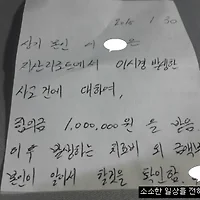 2016 1 30
상기 본인 에 은
지산리조트에서 이시경 발생한
사고 건에 대하여,
합의금 1,000,000원 을 받음
이후 발생하는 치료비 외 금액은
본인이 알아서 할것을 확인함.
소소한 일상을 전해